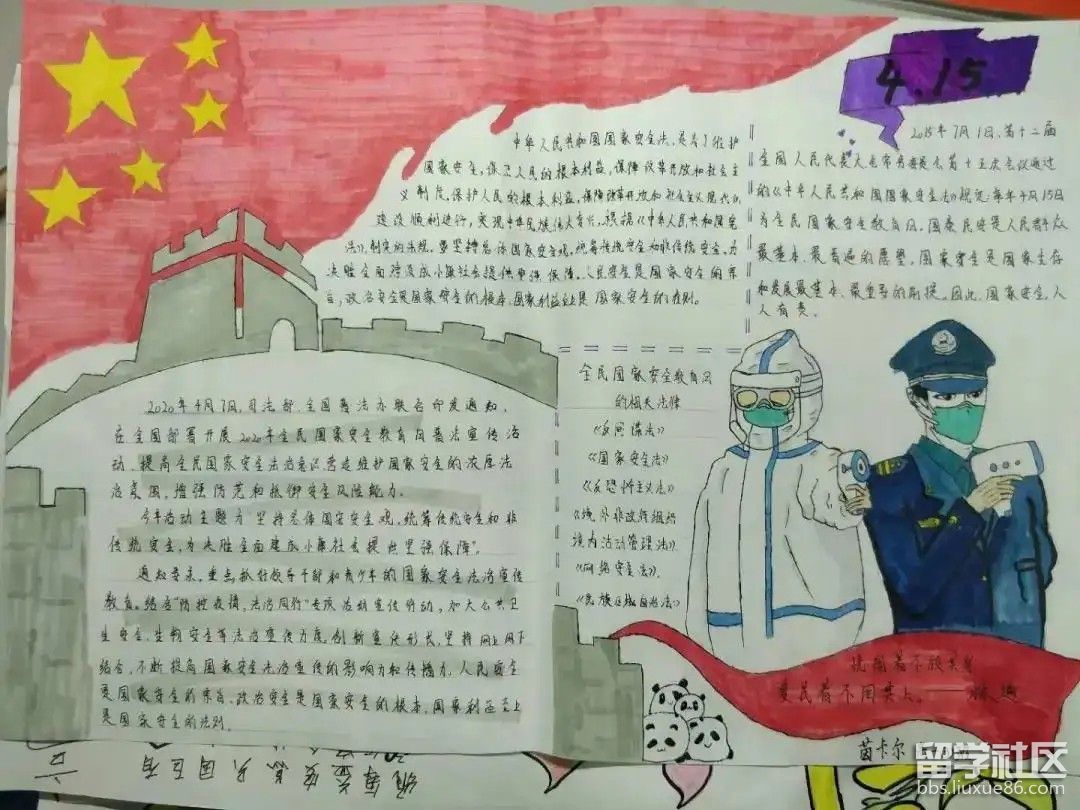 4.15
中华人民共和国国家安全法，是为了维护
国家安全，保卫人民的根本利益，保障改革开放和社会主
义制度，保护人民的根本利益，保障改革开放和社会主义现代化
建设顺利进行，实现中华民族伟大复兴，根据《中华人民共和国宪
法》，制定的法规。要坚持总体国家安全观，统筹传统安全和非传统安全，为
决胜全面建成小康社会提供坚强保障。人民安全是国家安全的宗
旨，政治安全是国家安全的根本，国家利益至上是国家安全的准则。
2015年7月1日，第十二届
全国人民代表大会常务委员会第十五次会议通过
的《中华人民共和国国家安全法》规定：每年4月15日
为全民国家安全教育日。国泰民安是人民群众
最基本、最普遍的愿望，国家安全是国家生存
和发展最基本、最重要的前提。因此，国家安全，人
人有责。
2020年4月7日，司法部、全国普法办联合印发通知，
在全国部署开展2020年全民国家安全教育日普法宣传活
动，提高全民国家安全法治意识，营造维护国家安全的浓厚法
治氛围，增强防范和抵御安全风险能力。
今年活动主题为"坚持总体国家安全观，统筹传统安全和非
传统安全，为决胜全面建成小康社会提供坚强保障"。
通知要求，重点抓好领导干部和青少年的国家安全法治宣传
教育。结合"防控疫情，法治同行"专项法治宣传行动，加大公共卫
生安全、生物安全等法治宣传力度，创新宣传形式，坚持网上网下
结合，不断提高国家安全法治宣传的影响力和传播力。人民安全
是国家安全的宗旨，政治安全是国家安全的根本，国家利益至上
是国家安全的法则。
全民国家安全教育日
的相关法律
《反间谍法》
《国家安全法》
《反恐怖主义法》
《境外非政府组织
境内活动管理法》
《网络安全法》
《民族区域自治法》
统国者不
爱民者不困其上。
茵卡尔
留学社区
bbs.liuxue86.com